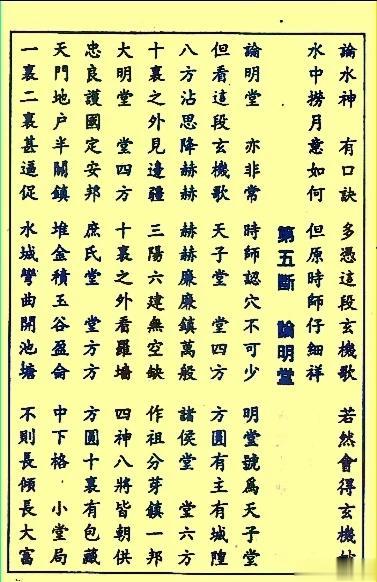 論水神　有口訣　多憑這段玄機歌　若然會得玄機妙
水中撈月意如何　但原時師仔細祥
第五斷　論明堂
論明堂　亦非常　時師認穴不可少　明堂號為天子堂
但看這段玄機歌　天子堂　堂四方　方圓有主有城隍
八方沾思降赫赫　赫赫廉廉鎮萬般　諸侯堂　堂六方
十裏之外見邊疆　三陽六建無空缺　作祖分芽鎮一邦
大明堂　堂四方　十裏之外看羅墻　四神八將皆朝供
忠良護國定安邦　庶氏堂　堂方方　方圓十裏有包藏
天門地户半關鎮　堆金積玉谷盈侖　中下格　小堂局
一裏二裏甚逼促　水城彎曲開池塘　不則長傾長大富